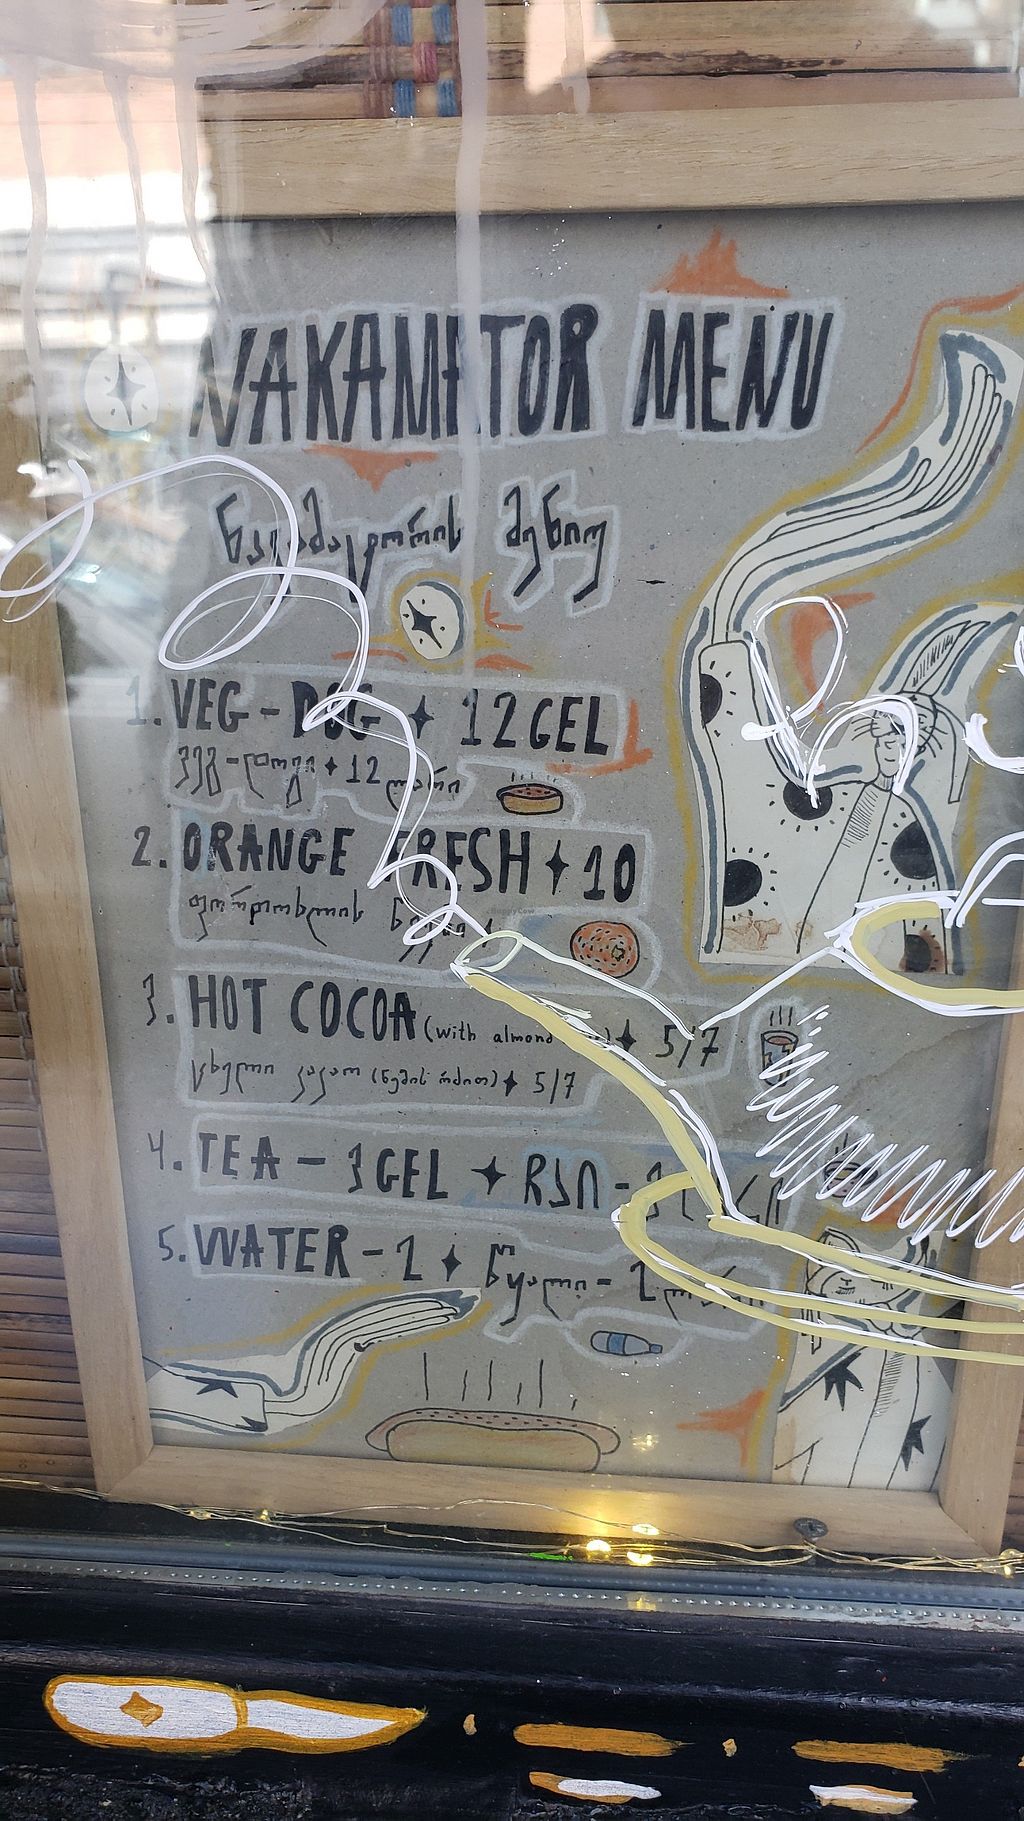 NAKAMATOR MENU
ნაკამატორის მენიუ
1. VEG - DOG ✦ 12 GEL
ვეგ-დოგი ✦ 12 ლარი
2. ORANGE FRESH ✦ 10
ფორთოხლის წვენი
HappyCow
3. HOT COCOA (with almond ✦ 5/7
ცხელი კაკაო (ნუშის რძით) ✦ 5/7
4. TEA - 3 GEL ✦ ჩაი -
5. WATER - 2 ✦ წყალი - 2 ლარი